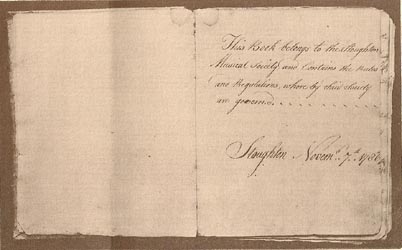 This Book belongs to the Stoughton
Musical Society and Contains the Rules
and Regulations, where by this Society
are governd . . . . . . . . . . .
Stoughton Novemr. 7th. 1786